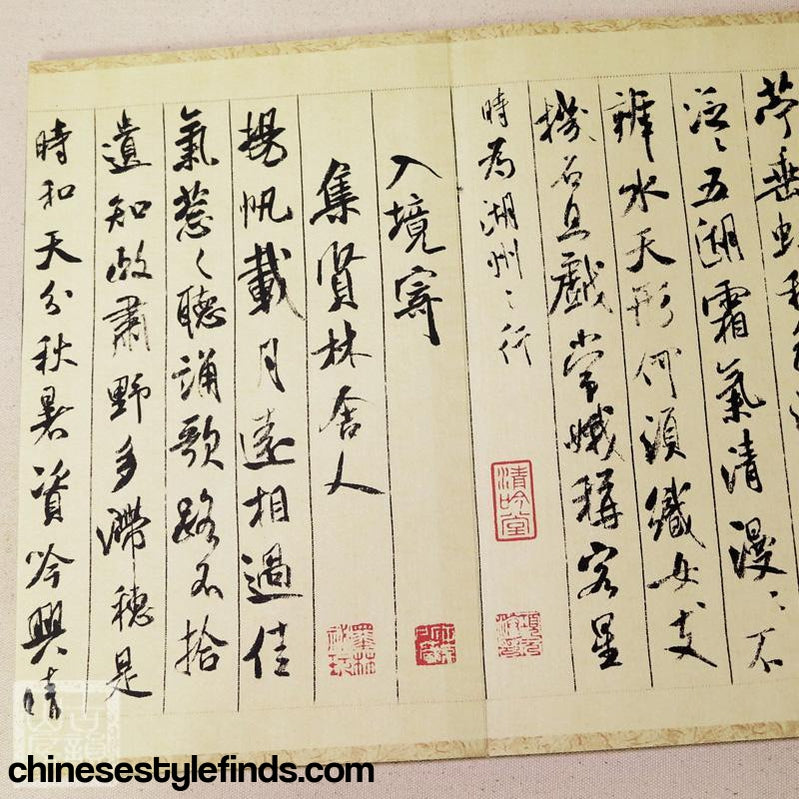 苧垂虹秋色
泛〻五湖霜氣清漫〻不
辨水天形何須織女支
機石且戲常娥稱客星
時為湖州之行
清吟堂
入境寄
集賢林舍人
揚帆載月遠相過佳
氣葱〻聽誦歌路不拾
遺知政肅野多滯穗是
時和天分秋暑資吟興晴
chinesestylefinds.com